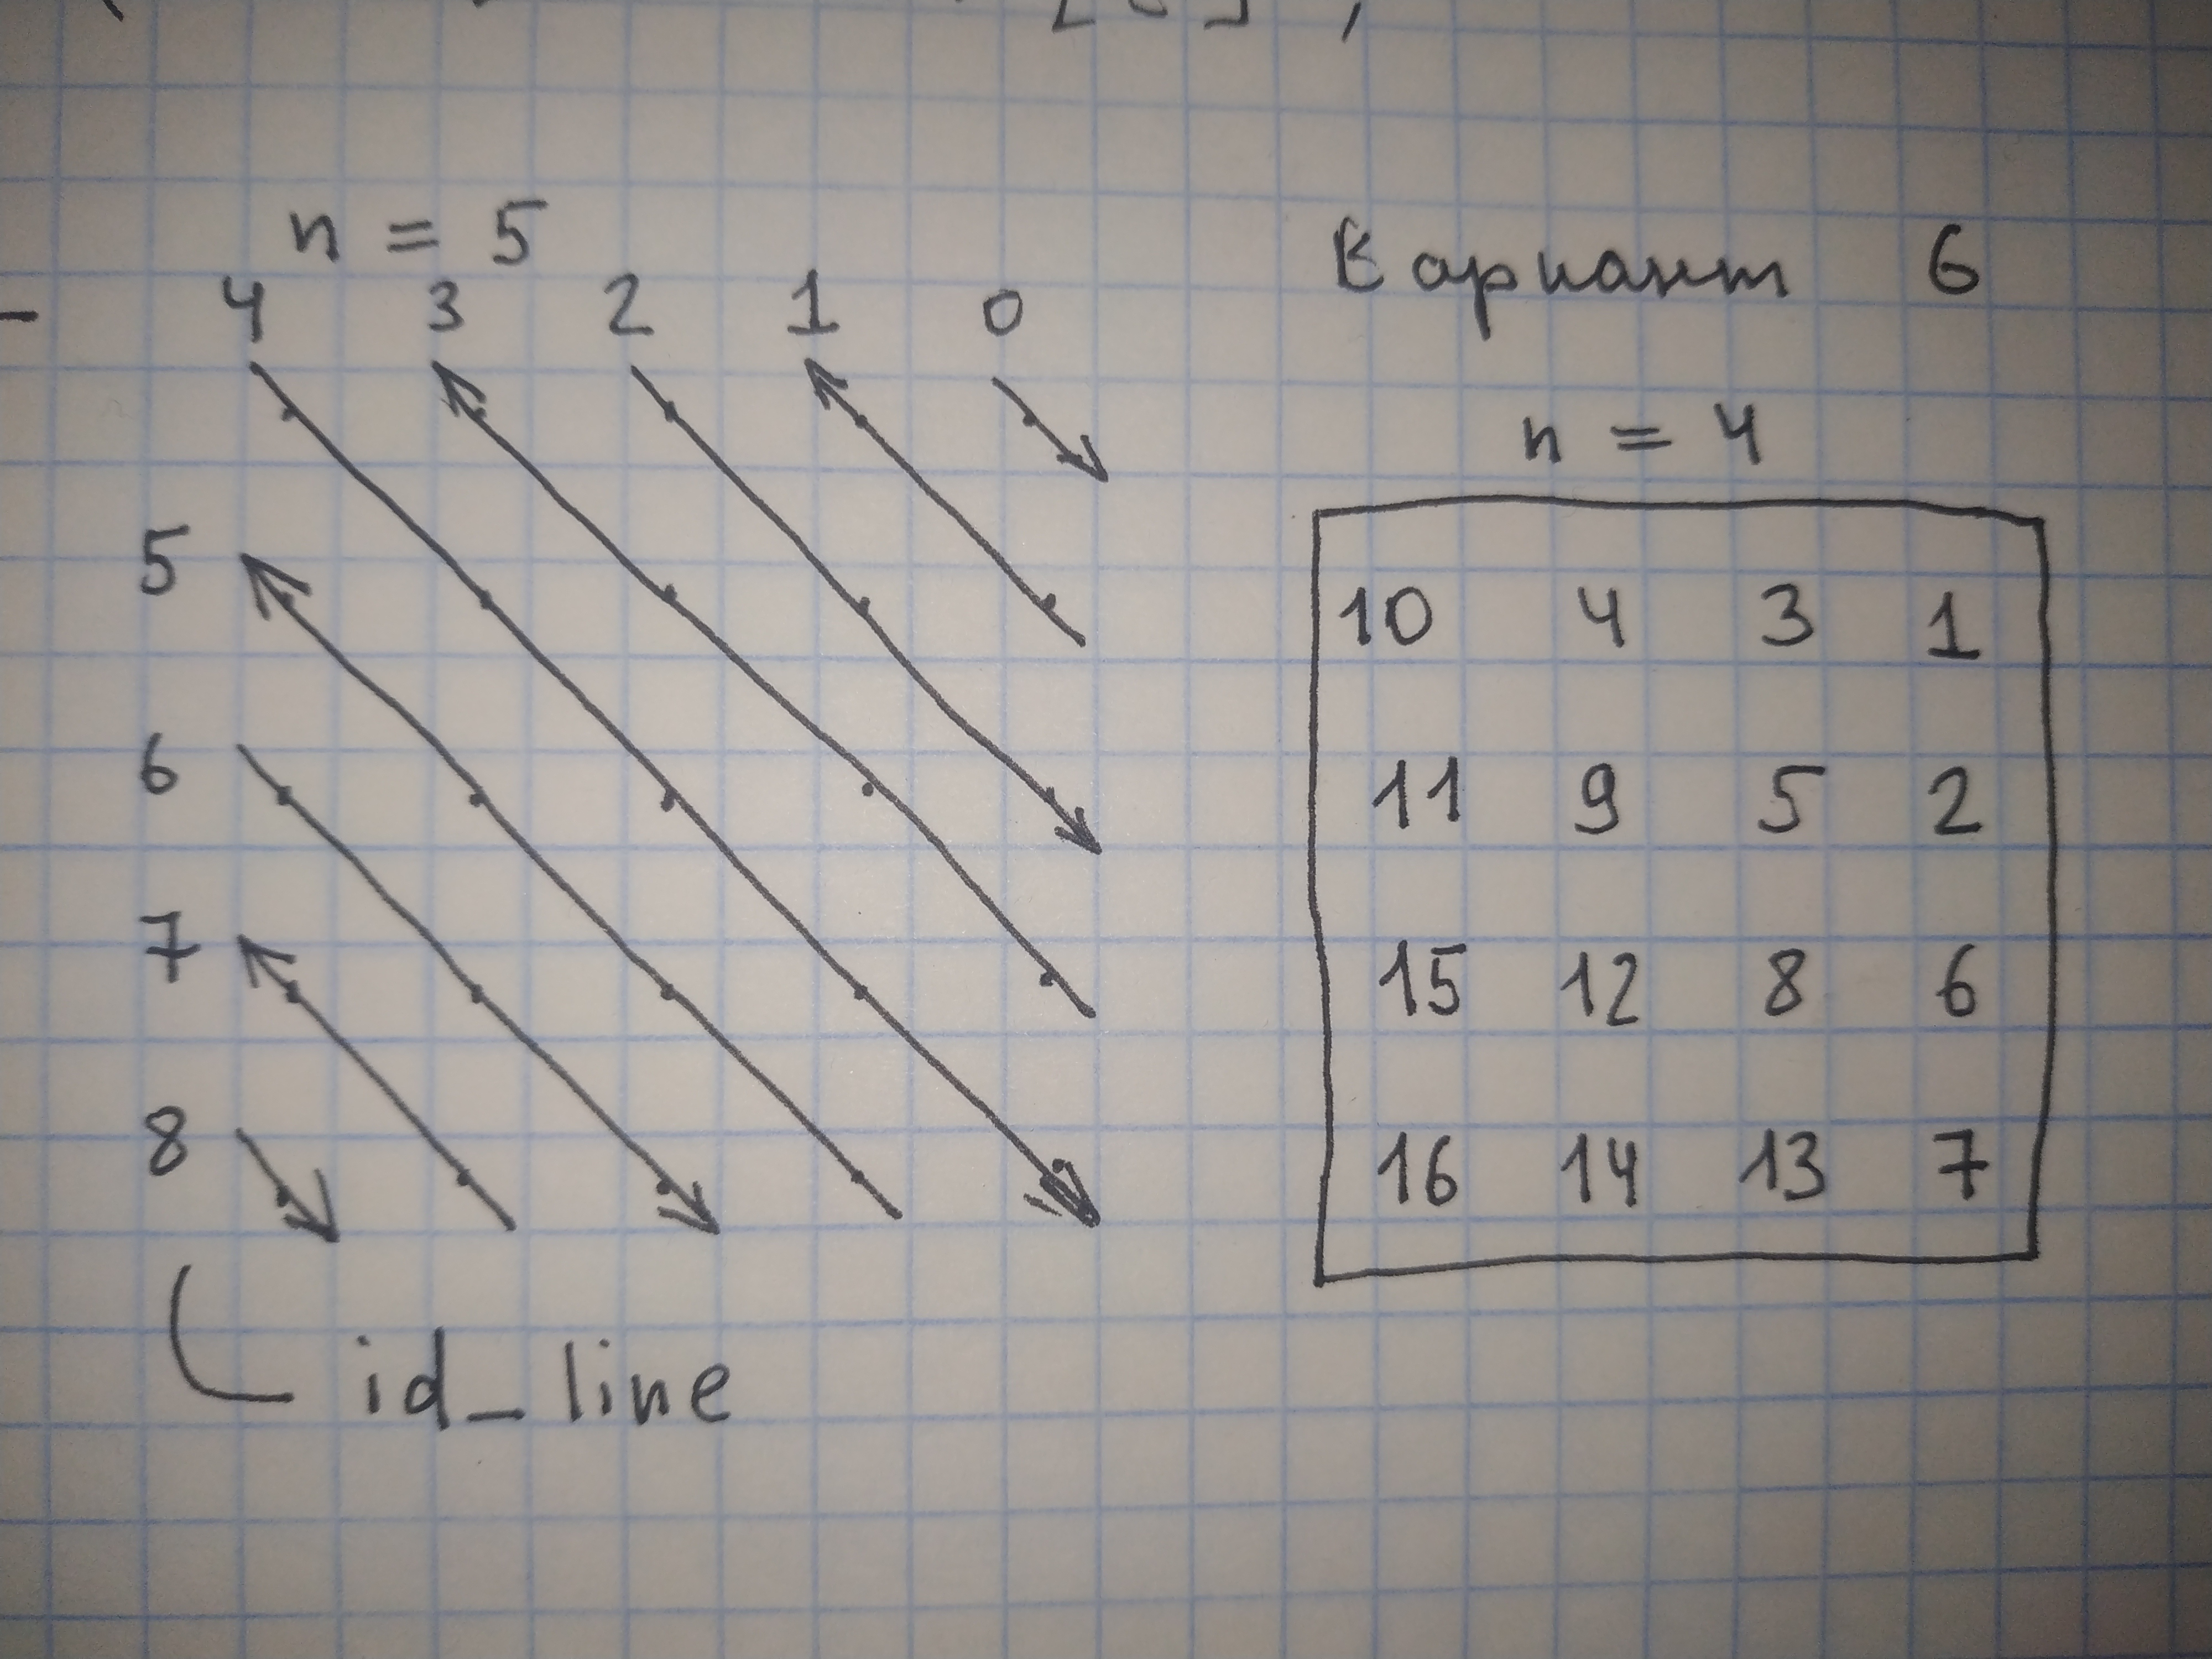 n = 5
4 3 2 1 0
5
6
7
8
id_line
Вариант 6
n = 4
10 4 3 1
11 9 5 2
15 12 8 6
16 14 13 7